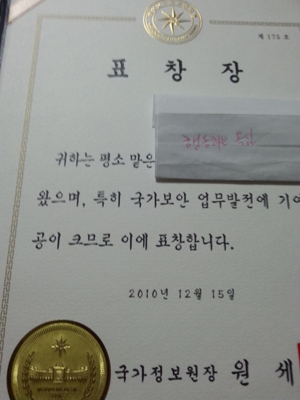 제 175 호
표 창 장
귀하는 평소 맡은
왔으며, 특히 국가보안 업무발전에 기여
공이 크므로 이에 표창합니다.
2010년 12월 15일
국가정보원장 원 세